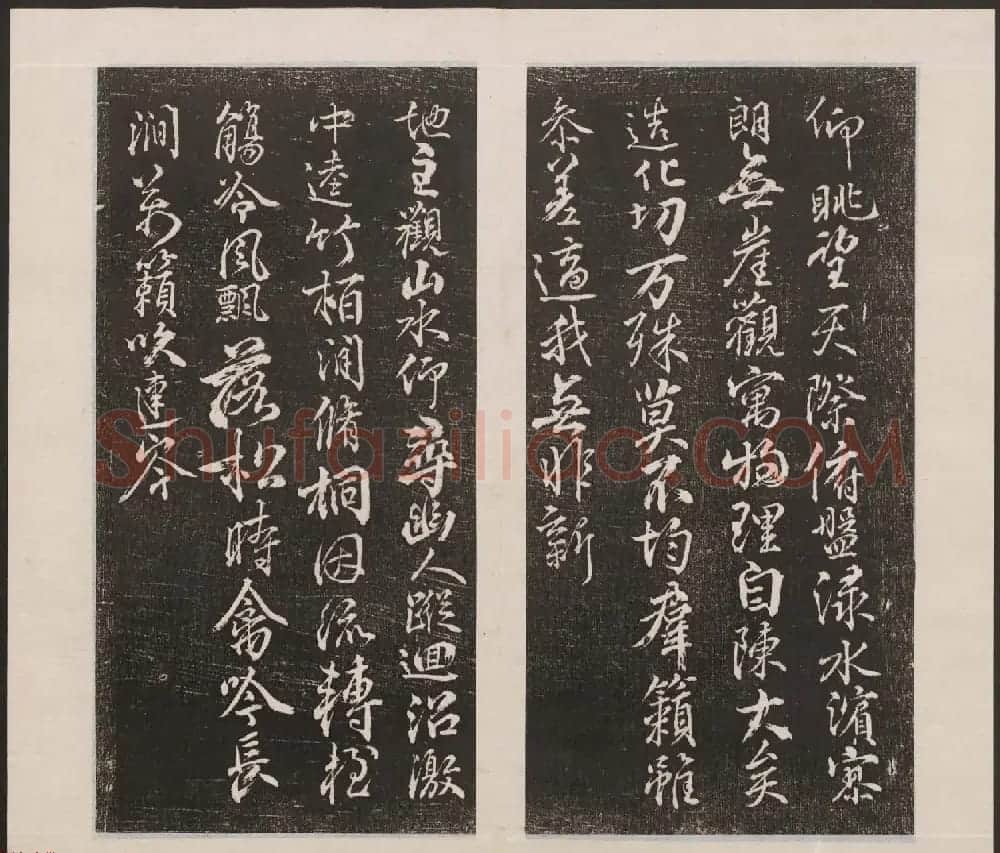 仰眺望天際俯盤淥水濱寥
朗無崖觀寓物理自陳大矣
造化切万殊莫不均羣籟雖
參差適我無非新
地主觀山水仰尋幽人蹤迴沼激
中逵竹柏間脩桐因流轉輕
觴冷風飄落松時禽吟長
澗萬籟吹連峯
Shufaziliao.COM